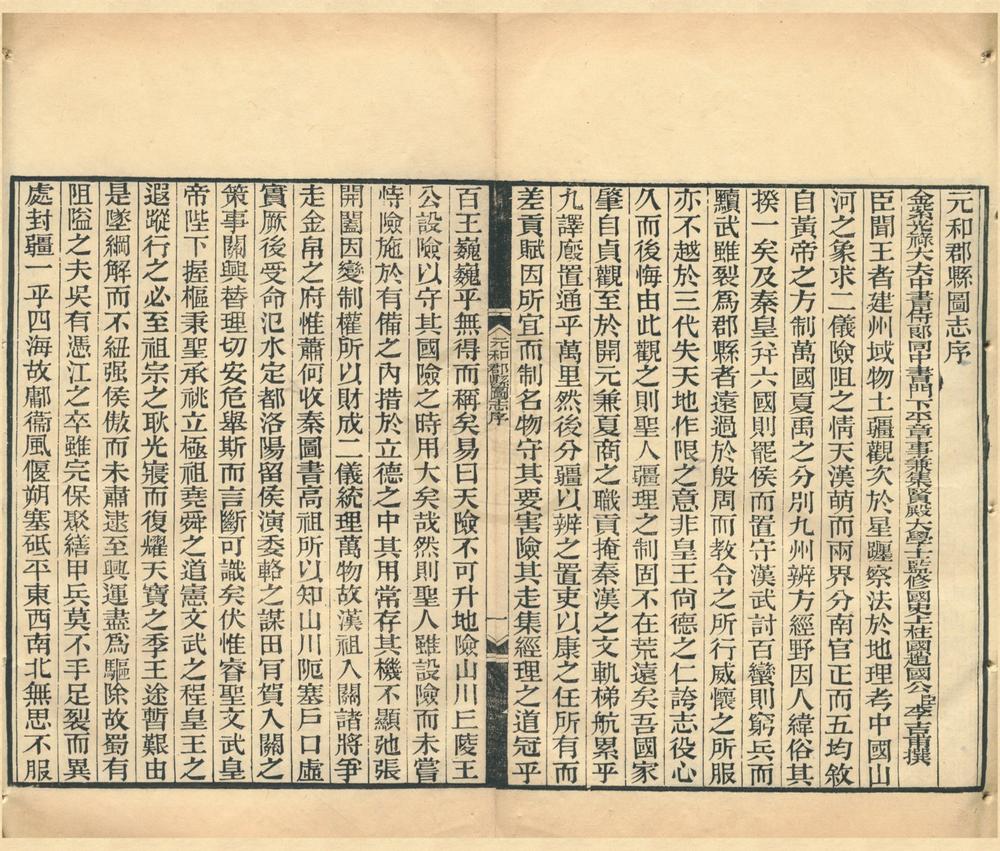 元和郡縣圖志序
金紫光祿大夫中書侍郎同中書門下平章事兼集賢殿大學士監修國史上柱國趙國公臣李吉甫撰
臣聞王者建州域物土疆觀次於星躔察法於地理考中國山
河之象求二儀險阻之情天漢萌而兩界分南官正而五均敘
自黃帝之方制萬國夏禹之分別九州辨方經野因人緯俗其
揆一矣及秦皇并六國則罷侯而置守漢武討百蠻則窮兵而
黷武雖裂為郡縣者遠過於殷周而教令之所行威懷之所服
亦不越於三代失天地作限之意非皇王尚德之仁誇志役心
久而後悔由此觀之則聖人疆理之制固不在荒遠矣吾國家
肇自貞觀至於開元兼夏商之職貢掩秦漢之文軌梯航累乎
九譯廐置通乎萬里然後分疆以辨之置吏以康之任所有而
差貢賦因所宜而制名物守其要害險其走集經理之道冠乎
元和郡縣圖志序
一
百王巍巍乎無得而稱矣易曰天險不可升地險山川丘陵王
公設險以守其國險之時用大矣哉然則聖人雖設險而未嘗
恃險施於有備之內措於立德之中其用常存其機不顯弛張
開闔因變制權所以財成二儀統理萬物故漢祖入關諸將爭
走金帛之府惟蕭何收秦圖書高祖所以知山川阨塞戶口虛
實厥後受命氾水定都洛陽留侯演委輅之謀田肎賀入關之
策事關興替理切安危舉斯而言斷可識矣伏惟睿聖文武皇
帝陛下握樞秉聖承祧立極祖堯舜之道憲文武之程皇王之
遐蹤行之必至祖宗之耿光寢而復耀天寶之季王途暫艱由
是墜綱解而不紐强侯傲而未肅逮至興運盡為驅除故蜀有
阻隘之夫吳有憑江之卒雖完保聚繕甲兵莫不手足裂而異
處封疆一乎四海故鄘衞風偃朔塞砥平東西南北無思不服